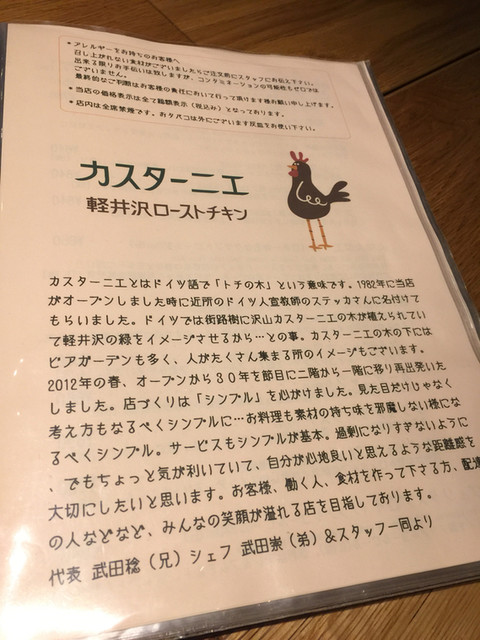 • アレルギーをお持ちのお客様へ
召し上がれない食材がございましたらご注文前にスタッフにお伝え下さい。
出来る限りお手伝いは致しますが、コンタミネーションの可能性もゼロでは
ございません。
最終的なご判断はお客様の責任において行って頂けます様お願い申し上げます。
• 当店の価格表示は全て総額表示（税込み）となっております。
• 店内は全席禁煙です。おタバコは外にございます灰皿をお使い下さい。
カスターニエ
軽井沢ローストチキン
カスターニエとはドイツ語で「トチの木」という意味です。1982年に当店
がオープンしました時に近所のドイツ人宣教師のステッカさんに名付けて
もらいました。ドイツでは街路樹に沢山カスターニエの木が植えられてい
て軽井沢の緑をイメージさせるから…との事。カスターニエの木の下には
ビアガーデンも多く、人がたくさん集まる所のイメージもございます。
2012年の春、オープンから30年を節目に二階から一階に移り再出発いた
しました。店づくりは「シンプル」を心がけました。見た目だけじゃなく
考え方もなるべくシンプルに…お料理も素材の持ち味を邪魔しない様にな
るべくシンプル。サービスもシンプルが基本。過剰になりすぎないように
、でもちょっと気が利いていて、自分が心地良いと思えるような距離感を
大切にしたいと思います。お客様、働く人、食材を作って下さる方、配達
の人などなど、みんなの笑顔が溢れる店を目指しております。
代表 武田稔（兄）シェフ 武田崇（弟）&スタッフ一同より